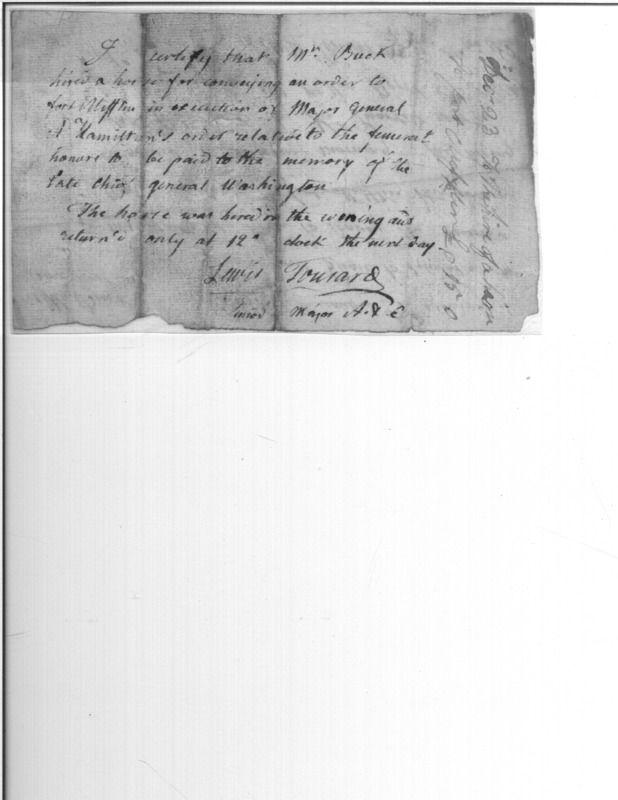 I certify that Mr. Buck
hired a horse for conveying an order to
fort Mifflin in execution of Major general
A Hamilton's order relative to the funeral
honors to be paid to the memory of the
late chief general Washington
The horse was hired in the evening and
return'd only at 12 o clock the next day
Lewis Tousard
Major
Dec 23 To the hire of a horse
to fort